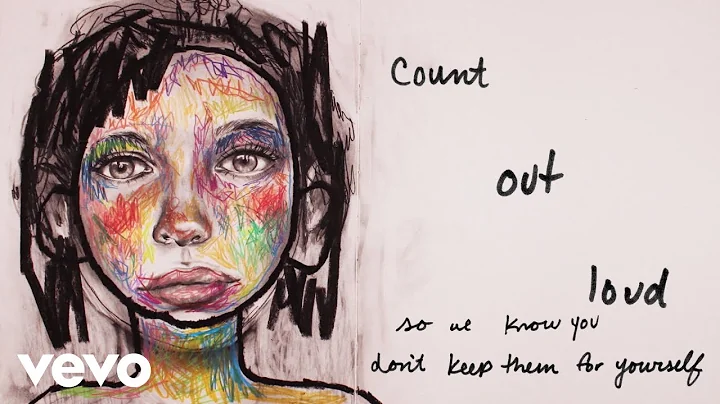 Count
out
loud
so we know you
don't keep them for yourself
vevo